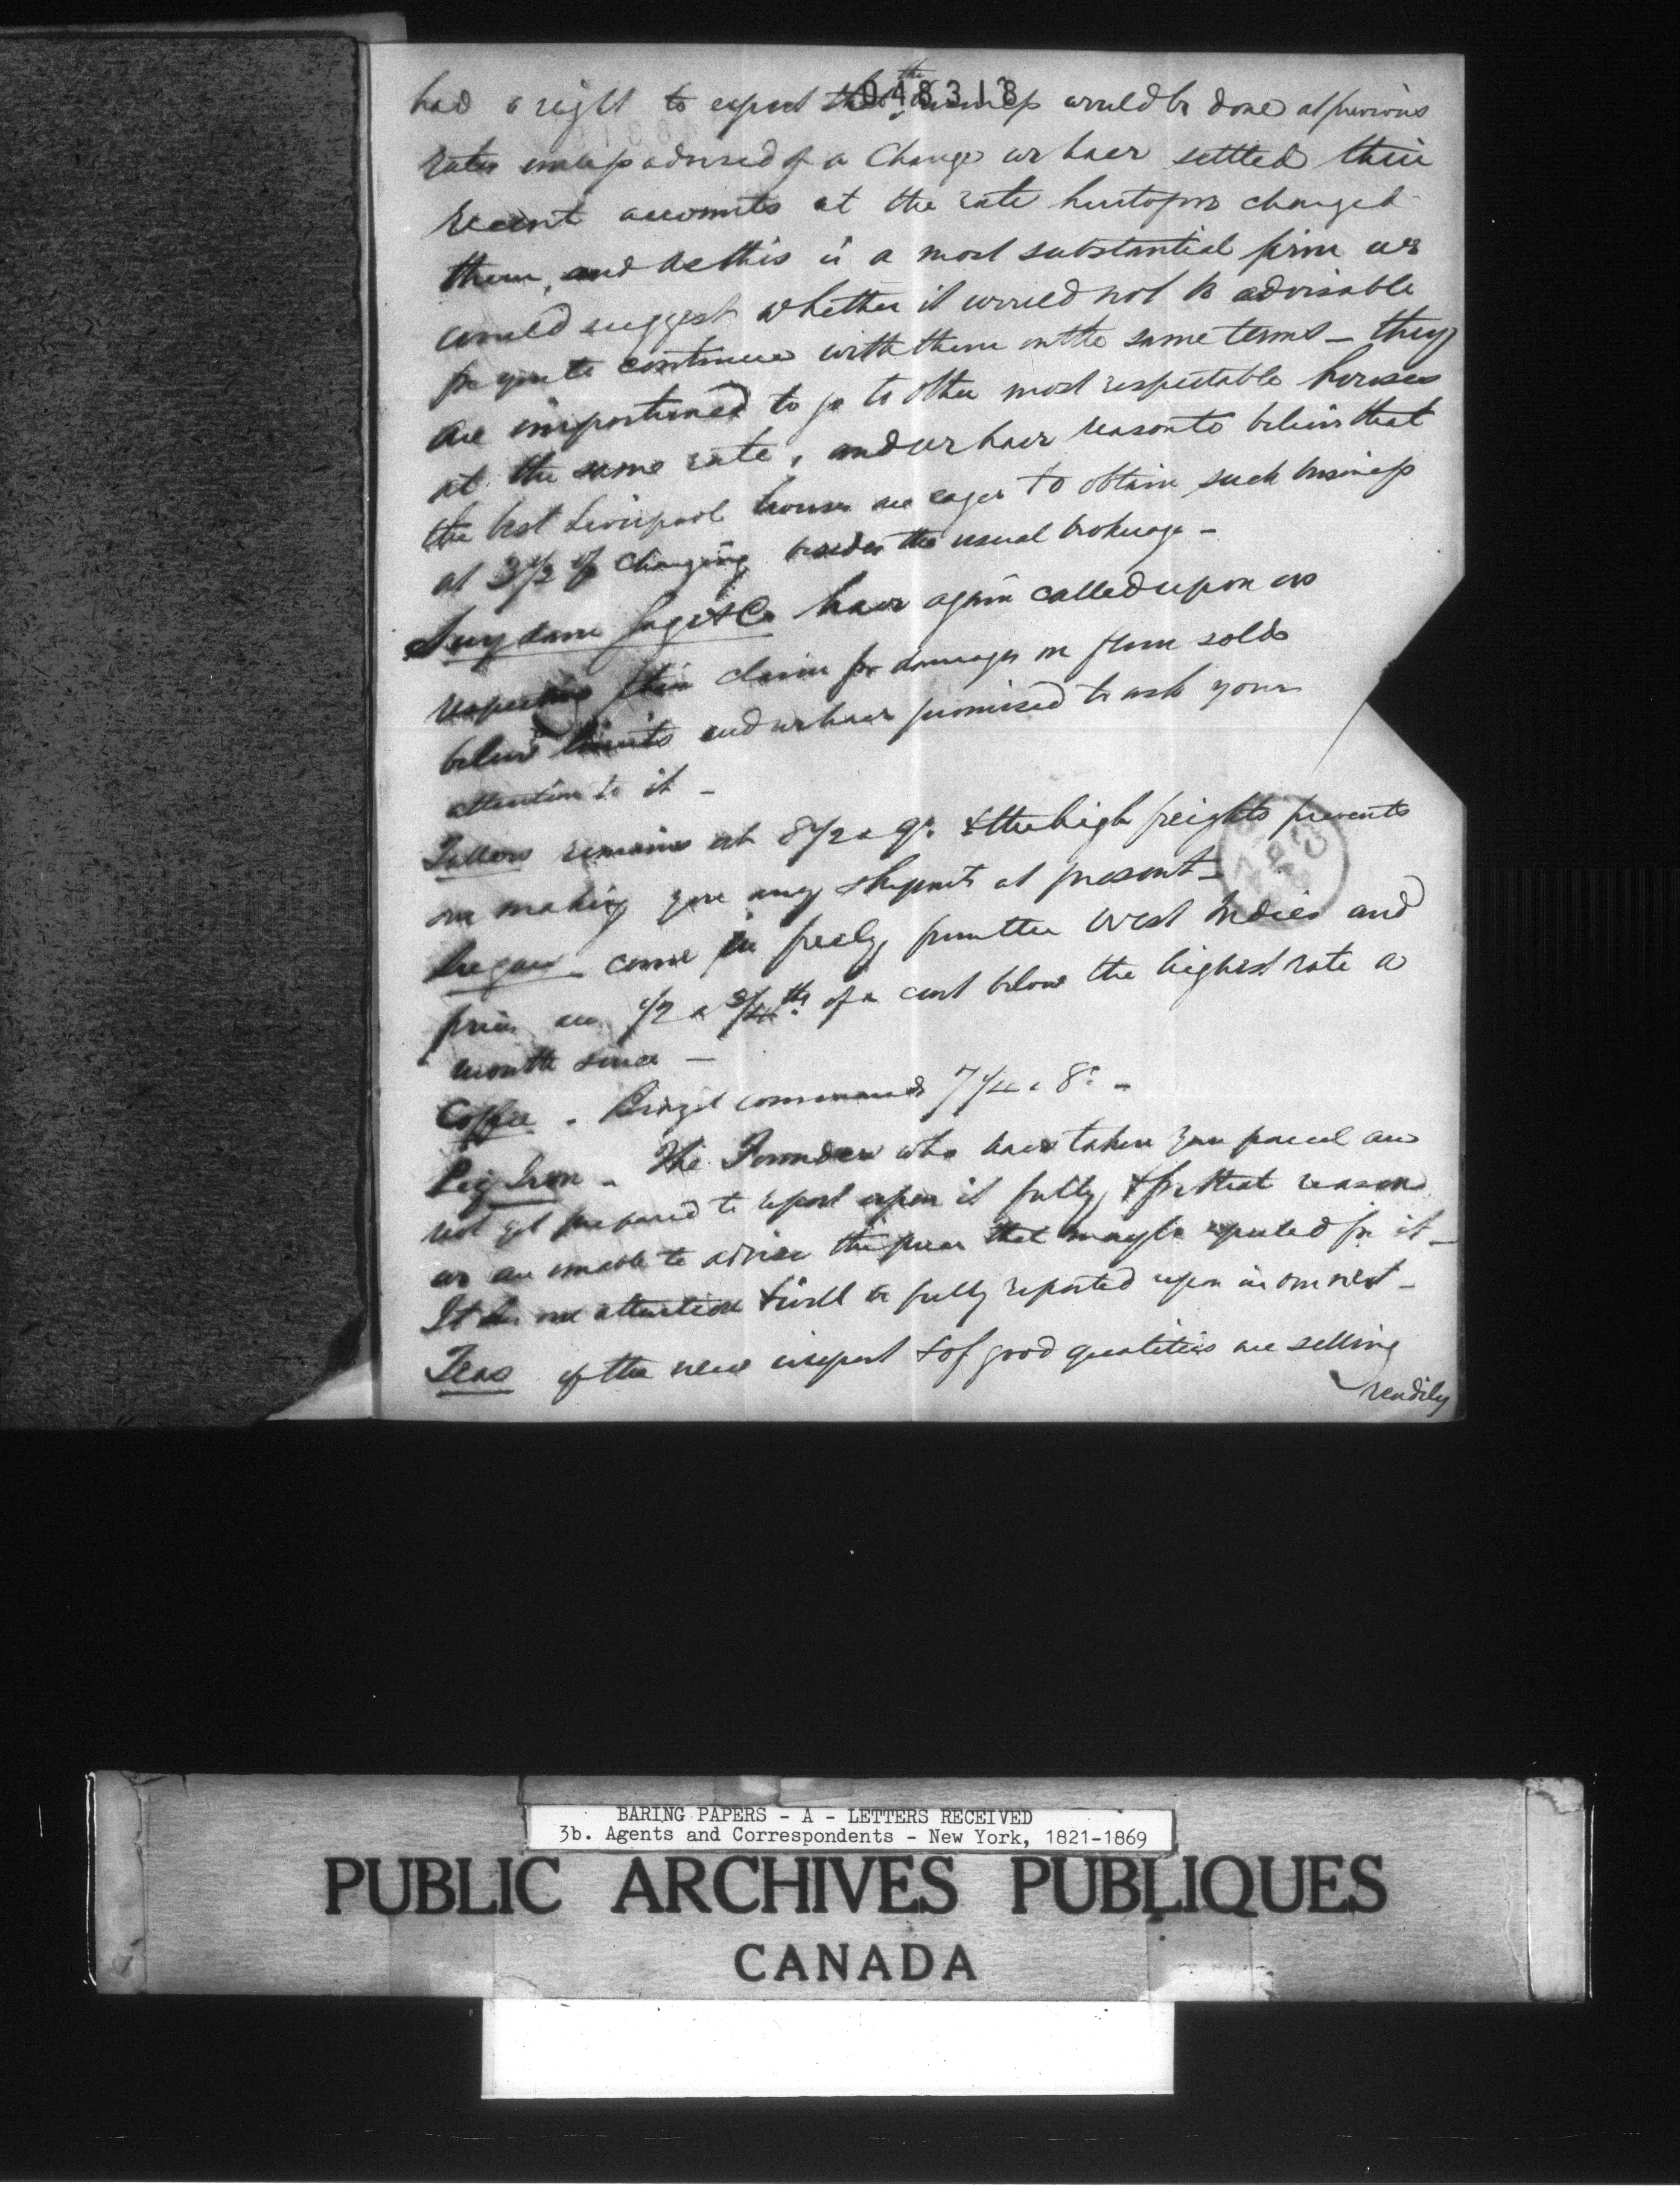 048318
had a right to expect that the business would be done at previous
rates unless advised of a Change we have settled their
recent accounts at the rate heretofore charged
them, and as this is a most substantial firm we
would suggest whether it would not be advisable
for you to continue with them on the same terms – they
are importuned to go to other most respectable houses
at the same rate, and we have reason to believe that
the best Liverpool houses are eager to obtain such business
at 3 1/2 % charging besides the usual brokerage –
Suydam Sage & Co have again called upon us
respecting their claim for damages on flour sold
below limits and we have promised to ask your
attention to it –
Tallow remains at 8 1/2 a 9c. & the high freights prevents
our making you any shipments at present –
Sugars come in freely from the West Indies and
prices are 1/2 a 3/4ths of a cent below the highest rate a
month since –
Coffee. Brazil commands 7 1/4 a 8c –
Pig Iron – The Founders who have taken your parcel are
not yet prepared to report upon it fully & for that reason
we are unable to advise the price that may be expected for it –
It has our attention & will be fully reported upon in our next –
Teas of the new import & of good qualities are selling
readily
BARING PAPERS - A - LETTERS RECEIVED
3b. Agents and Correspondents - New York, 1821-1869
PUBLIC ARCHIVES PUBLIQUES
CANADA